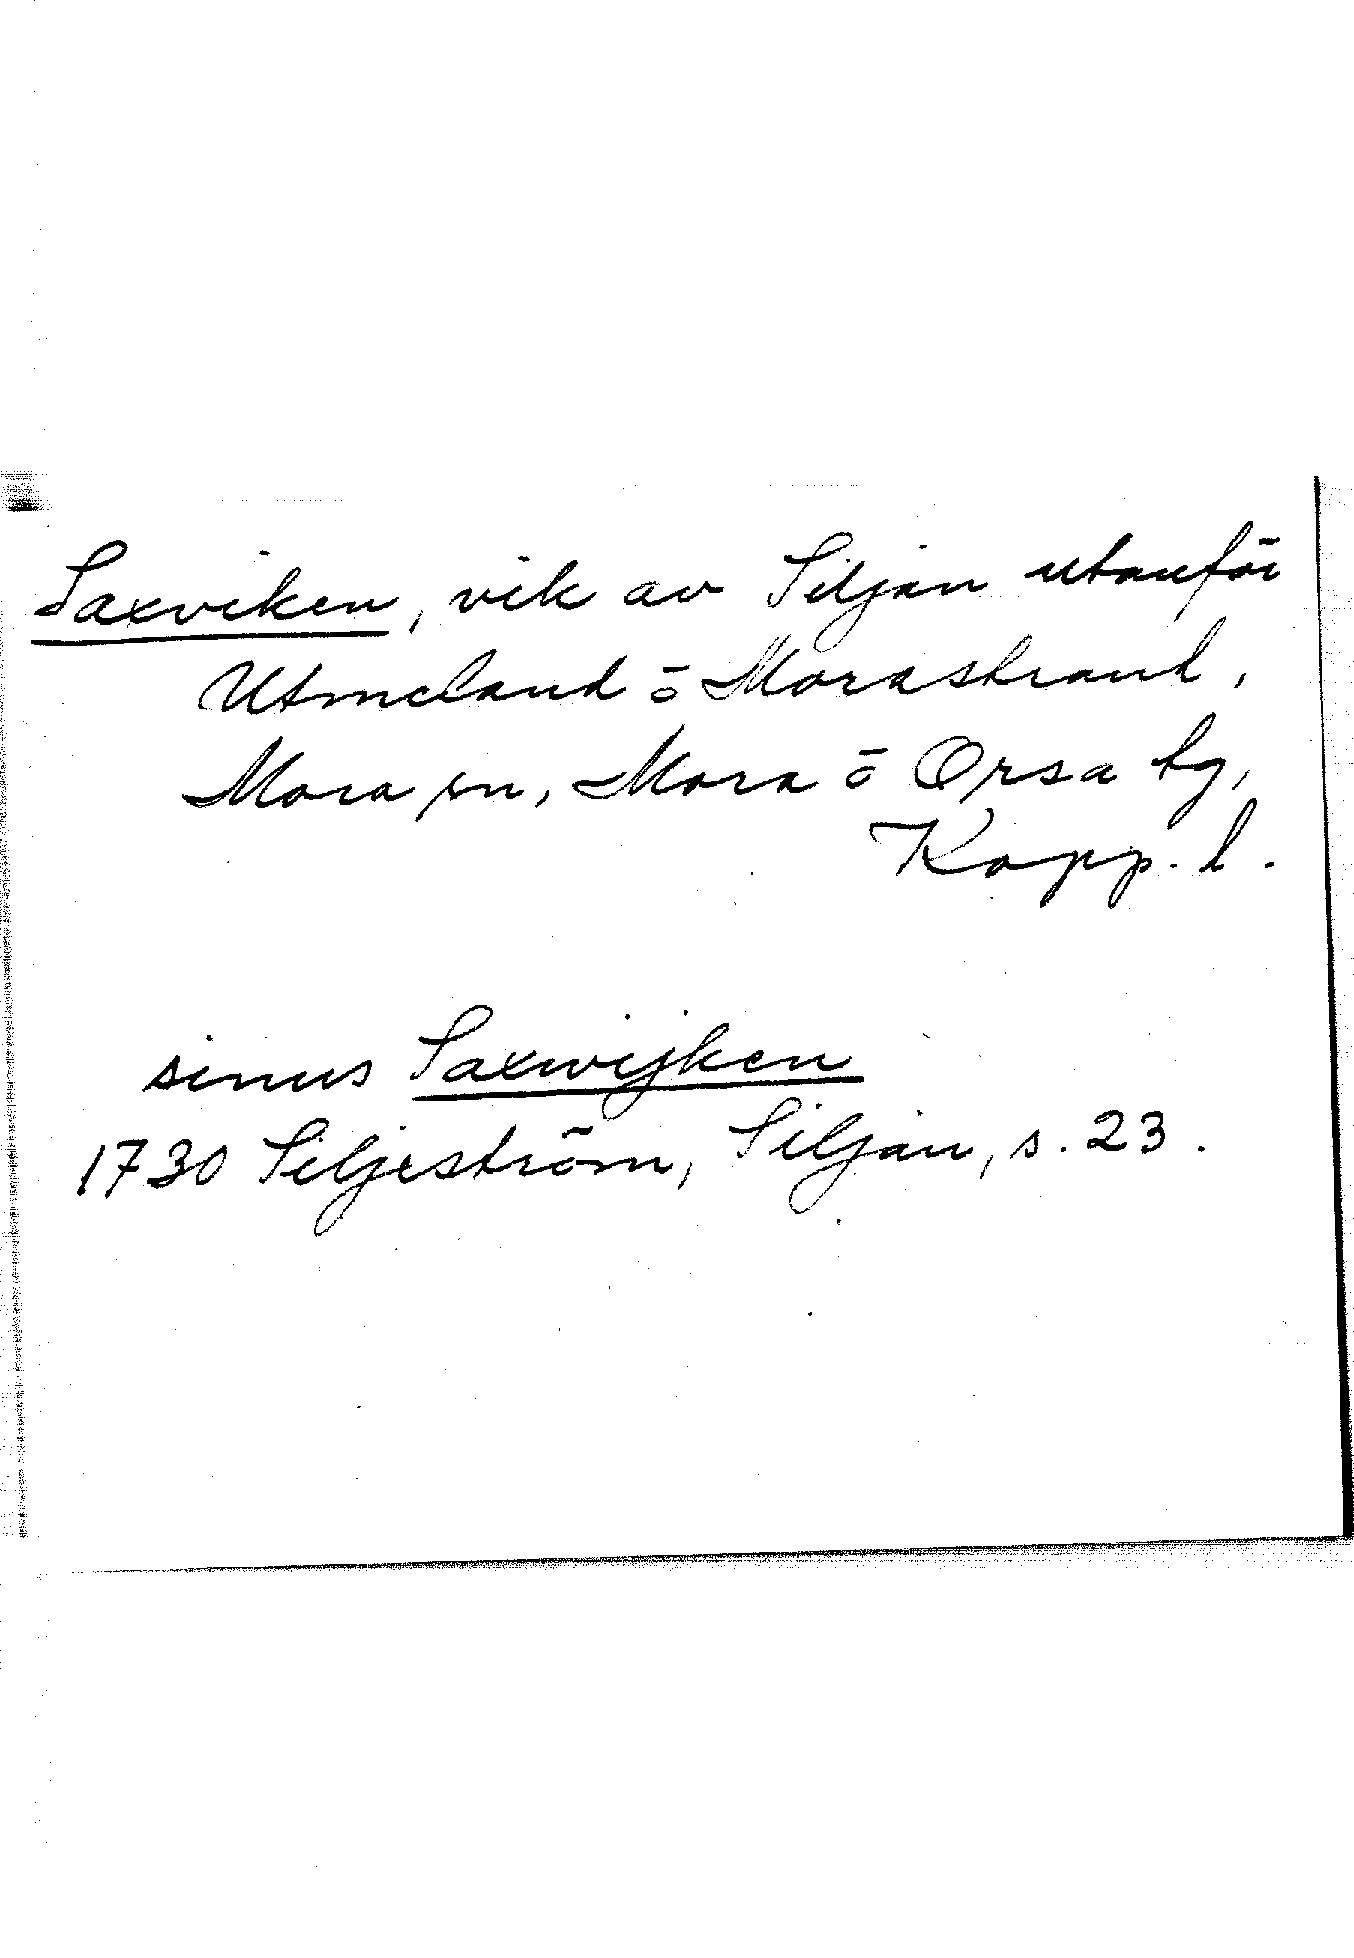 Saxviken, vik av Siljan utanför
Utmeland ō Morastrand,
Mora sn, Mora ō Orsa tg,
Kopp. l.
sinus Saxwijken
1730 Siljeström, Siljan, s. 23.